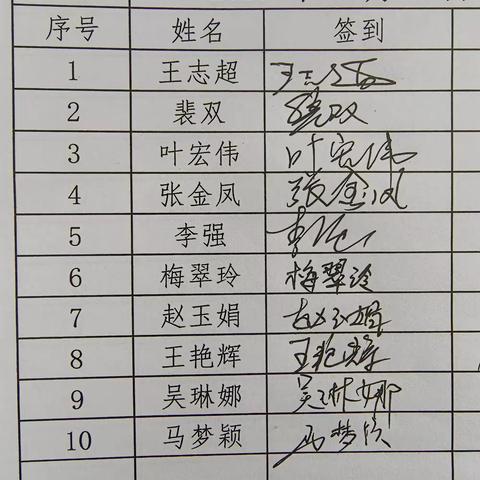 序号 姓名 签到
1 王志超 王志超
2 裴双 裴双
3 叶宏伟 叶宏伟
4 张金凤 张金凤
5 李强 李强
6 梅翠玲 梅翠玲
7 赵玉娟 赵玉娟
8 王艳辉 王艳辉
9 吴琳娜 吴琳娜
10 马梦颖 马梦颖